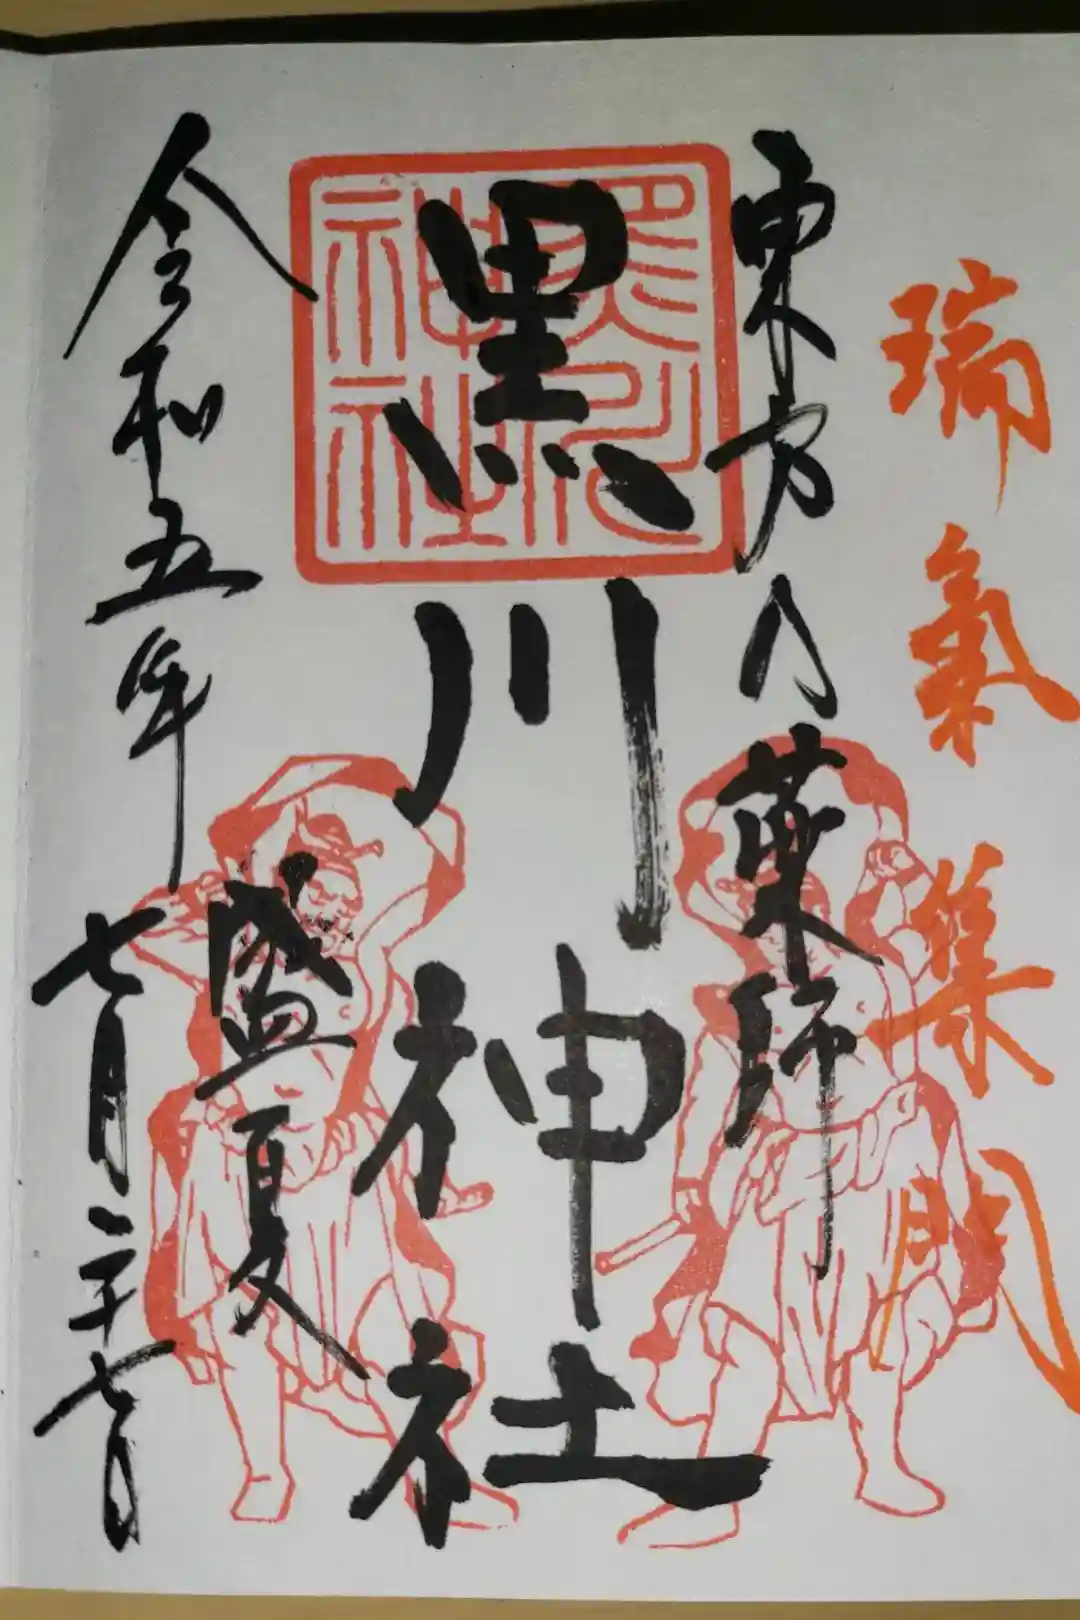 瑞氣集門
東方乃薬師
黒川神社
黒川
神社
盛夏
令和五年七月二十七日